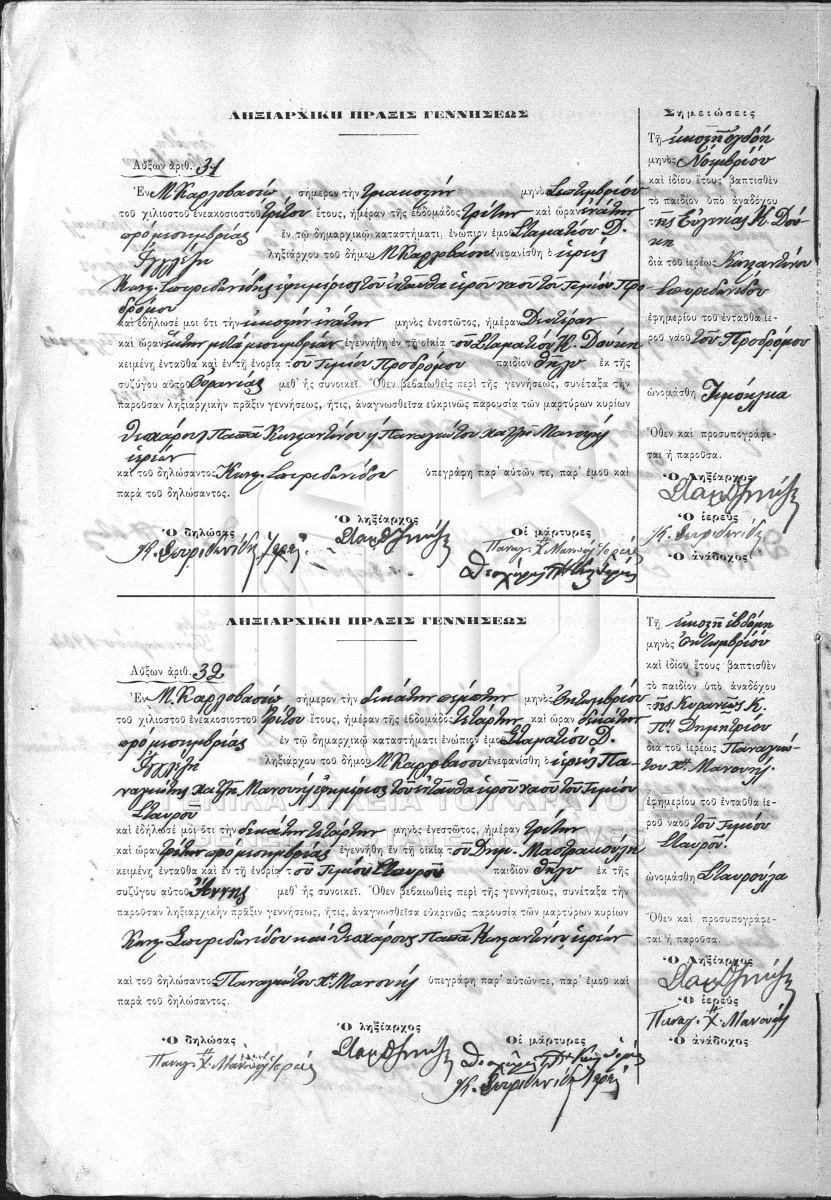 ΛΗΞΙΑΡΧΙΚΗ ΠΡΑΞΙΣ ΓΕΝΝΗΣΕΩΣ
Αὔξων ἀριθ. 31
Ἐν Μ. Καρλοβασίῳ σήμερον τὴν τριακοστὴν μηνὸς Σεπτεμβρίου
τοῦ χιλιοστοῦ ἐνεακοσιοστοῦ τρίτου ἔτους, ἡμέραν τῆς ἑβδομάδος Τρίτην καὶ ὥραν ἐνάτην
πρὸ μεσημβρίας ἐν τῷ δημαρχικῷ καταστήματι, ἐνώπιον ἐμοῦ Σταματίου Δ.
ληξιάρχου τοῦ δήμου Μ. Καρλοβασίου ἐνεφανίσθη ὁ ἱερεὺς
Κων. Σπυριδωνίδης ἐφημέριος τοῦ ἐνταῦθα ἱεροῦ ναοῦ τοῦ Τιμίου Προ-
δρόμου
καὶ ἐδήλωσέ μοι ὅτι τὴν εἰκοστὴν ἐνάτην μηνὸς ἐνεστῶτος, ἡμέραν Δευτέραν
καὶ ὥραν ἕκτην μετὰ μεσημβρίαν ἐγεννήθη ἐν τῇ οἰκίᾳ τοῦ Σταματίου Κ. Δούκη
κειμένῃ ἐνταῦθα καὶ ἐν τῇ ἐνορίᾳ τοῦ Τιμίου Προδρόμου παιδίον θῆλυ ἐκ τῆς
συζύγου αὐτοῦ Οὐρανίας μεθ' ἧς συνοικεῖ. Ὅθεν βεβαιωθεὶς περὶ τῆς γεννήσεως, συνέταξα τὴν
παροῦσαν ληξιαρχικὴν πρᾶξιν γεννήσεως, ἥτις, ἀναγνωσθεῖσα εὐκρινῶς παρουσίᾳ τῶν μαρτύρων κυρίων
Θεοχάρους Παπᾶ Κωνσταντίνου ἢ Παναγιώτου Χατζῆ Μανουὴλ
ἱερέων
καὶ τοῦ δηλώσαντος Κων. Σπυριδωνίδου ὑπεγράφη παρ' αὐτῶν τε, παρ' ἐμοῦ καὶ
παρὰ τοῦ δηλώσαντος.
Ὁ δηλώσας Ὁ ληξίαρχος Οἱ μάρτυρες
Κ. Σπυριδωνίδης Ἱερεὺς
Παναγ. Χ" Μανουὴλ Ἱερεύς
Σημειώσεις
Τῇ εἰκοστῇ ὀγδόῃ
μηνὸς Νοεμβρίου
καὶ ἰδίου ἔτους βαπτισθὲν
τὸ παιδίον ὑπὸ ἀναδόχου
τῆς Εὐγενίας Κ. Δού-
κη
διὰ τοῦ ἱερέως Κωνσταντίνου
Σπυριδωνίδου
ἐφημερίου τοῦ ἐνταῦθα ἱε-
ροῦ ναοῦ τοῦ Προδρόμου
ὠνομάσθη Τιμόκλεια
Ὅθεν καὶ προσυπογράφε-
ται ἡ παροῦσα.
Ὁ Ληξίαρχος
Ὁ ἱερεὺς
Κ. Σπυριδωνίδης
Ὁ ἀνάδοχος
ΛΗΞΙΑΡΧΙΚΗ ΠΡΑΞΙΣ ΓΕΝΝΗΣΕΩΣ
Αὔξων ἀριθ. 32
Ἐν Μ. Καρλοβασίῳ σήμερον τὴν δεκάτην πέμπτην μηνὸς Ὀκτωβρίου
τοῦ χιλιοστοῦ ἐνεακοσιοστοῦ τρίτου ἔτους, ἡμέραν τῆς ἑβδομάδος Τετάρτην καὶ ὥραν δεκάτην
πρὸ μεσημβρίας ἐν τῷ δημαρχικῷ καταστήματι ἐνώπιον ἐμοῦ Σταματίου Δ.
ληξιάρχου τοῦ δήμου Μ. Καρλοβασίου ἐνεφανίσθη ὁ ἱερεὺς Πα-
ναγιώτης Χατζῆ Μανουὴλ ἐφημέριος τοῦ ἐνταῦθα ἱεροῦ ναοῦ τοῦ Τιμίου
Σταυροῦ
καὶ ἐδήλωσέ μοι ὅτι τὴν δεκάτην τετάρτην μηνὸς ἐνεστῶτος, ἡμέραν Τρίτην
καὶ ὥραν τρίτην πρὸ μεσημβρίας ἐγεννήθη ἐν τῇ οἰκίᾳ τοῦ Δημ. Μαστρακούλη
κειμένῃ ἐνταῦθα καὶ ἐν τῇ ἐνορίᾳ τοῦ Τιμίου Σταυροῦ παιδίον θῆλυ ἐκ τῆς
συζύγου αὐτοῦ Ἄννης μεθ' ἧς συνοικεῖ. Ὅθεν βεβαιωθεὶς περὶ τῆς γεννήσεως, συνέταξα τὴν
παροῦσαν ληξιαρχικὴν πρᾶξιν γεννήσεως, ἥτις, ἀναγνωσθεῖσα εὐκρινῶς παρουσίᾳ τῶν μαρτύρων κυρίων
Κων. Σπυριδωνίδου καὶ Θεοχάρους Παπᾶ Κωνσταντίνου, ἱερέων
καὶ τοῦ δηλώσαντος Παναγιώτου Χ" Μανουὴλ ὑπεγράφη παρ' αὐτῶν τε, παρ' ἐμοῦ καὶ
παρὰ τοῦ δηλώσαντος.
Ὁ δηλώσας Ὁ ληξίαρχος Οἱ μάρτυρες
Παναγ. Χ" Μανουὴλ Ἱερεύς
Κ. Σπυριδωνίδης Ἱερεὺς
Τῇ εἰκοστῇ ἑβδόμῃ
μηνὸς Ὀκτωμβρίου
καὶ ἰδίου ἔτους βαπτισθὲν
τὸ παιδίον ὑπὸ ἀναδόχου
τῆς Κυρανίας Κ.
Πα Δημητρίου
διὰ τοῦ ἱερέως Παναγιώ-
του Χ" Μανουήλ.
ἐφημερίου τοῦ ἐνταῦθα ἱε-
ροῦ ναοῦ τοῦ Τιμίου
Σταυροῦ.
ὠνομάσθη Σταυρούλα
Ὅθεν καὶ προσυπογράφε-
ται ἡ παροῦσα.
Ὁ Ληξίαρχος
Ὁ ἱερεὺς
Παναγ. Χ" Μανουὴλ
Ὁ ἀνάδοχος
ΓΕΝΙΚΑ ΑΡΧΕΙΑ ΤΟΥ ΚΡΑΤΟΥΣ